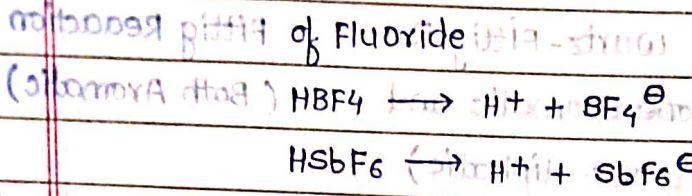 of Fluoride
HBF4 → H+ + BF4⊖
HSbF6 → H+ + SbF6⊖